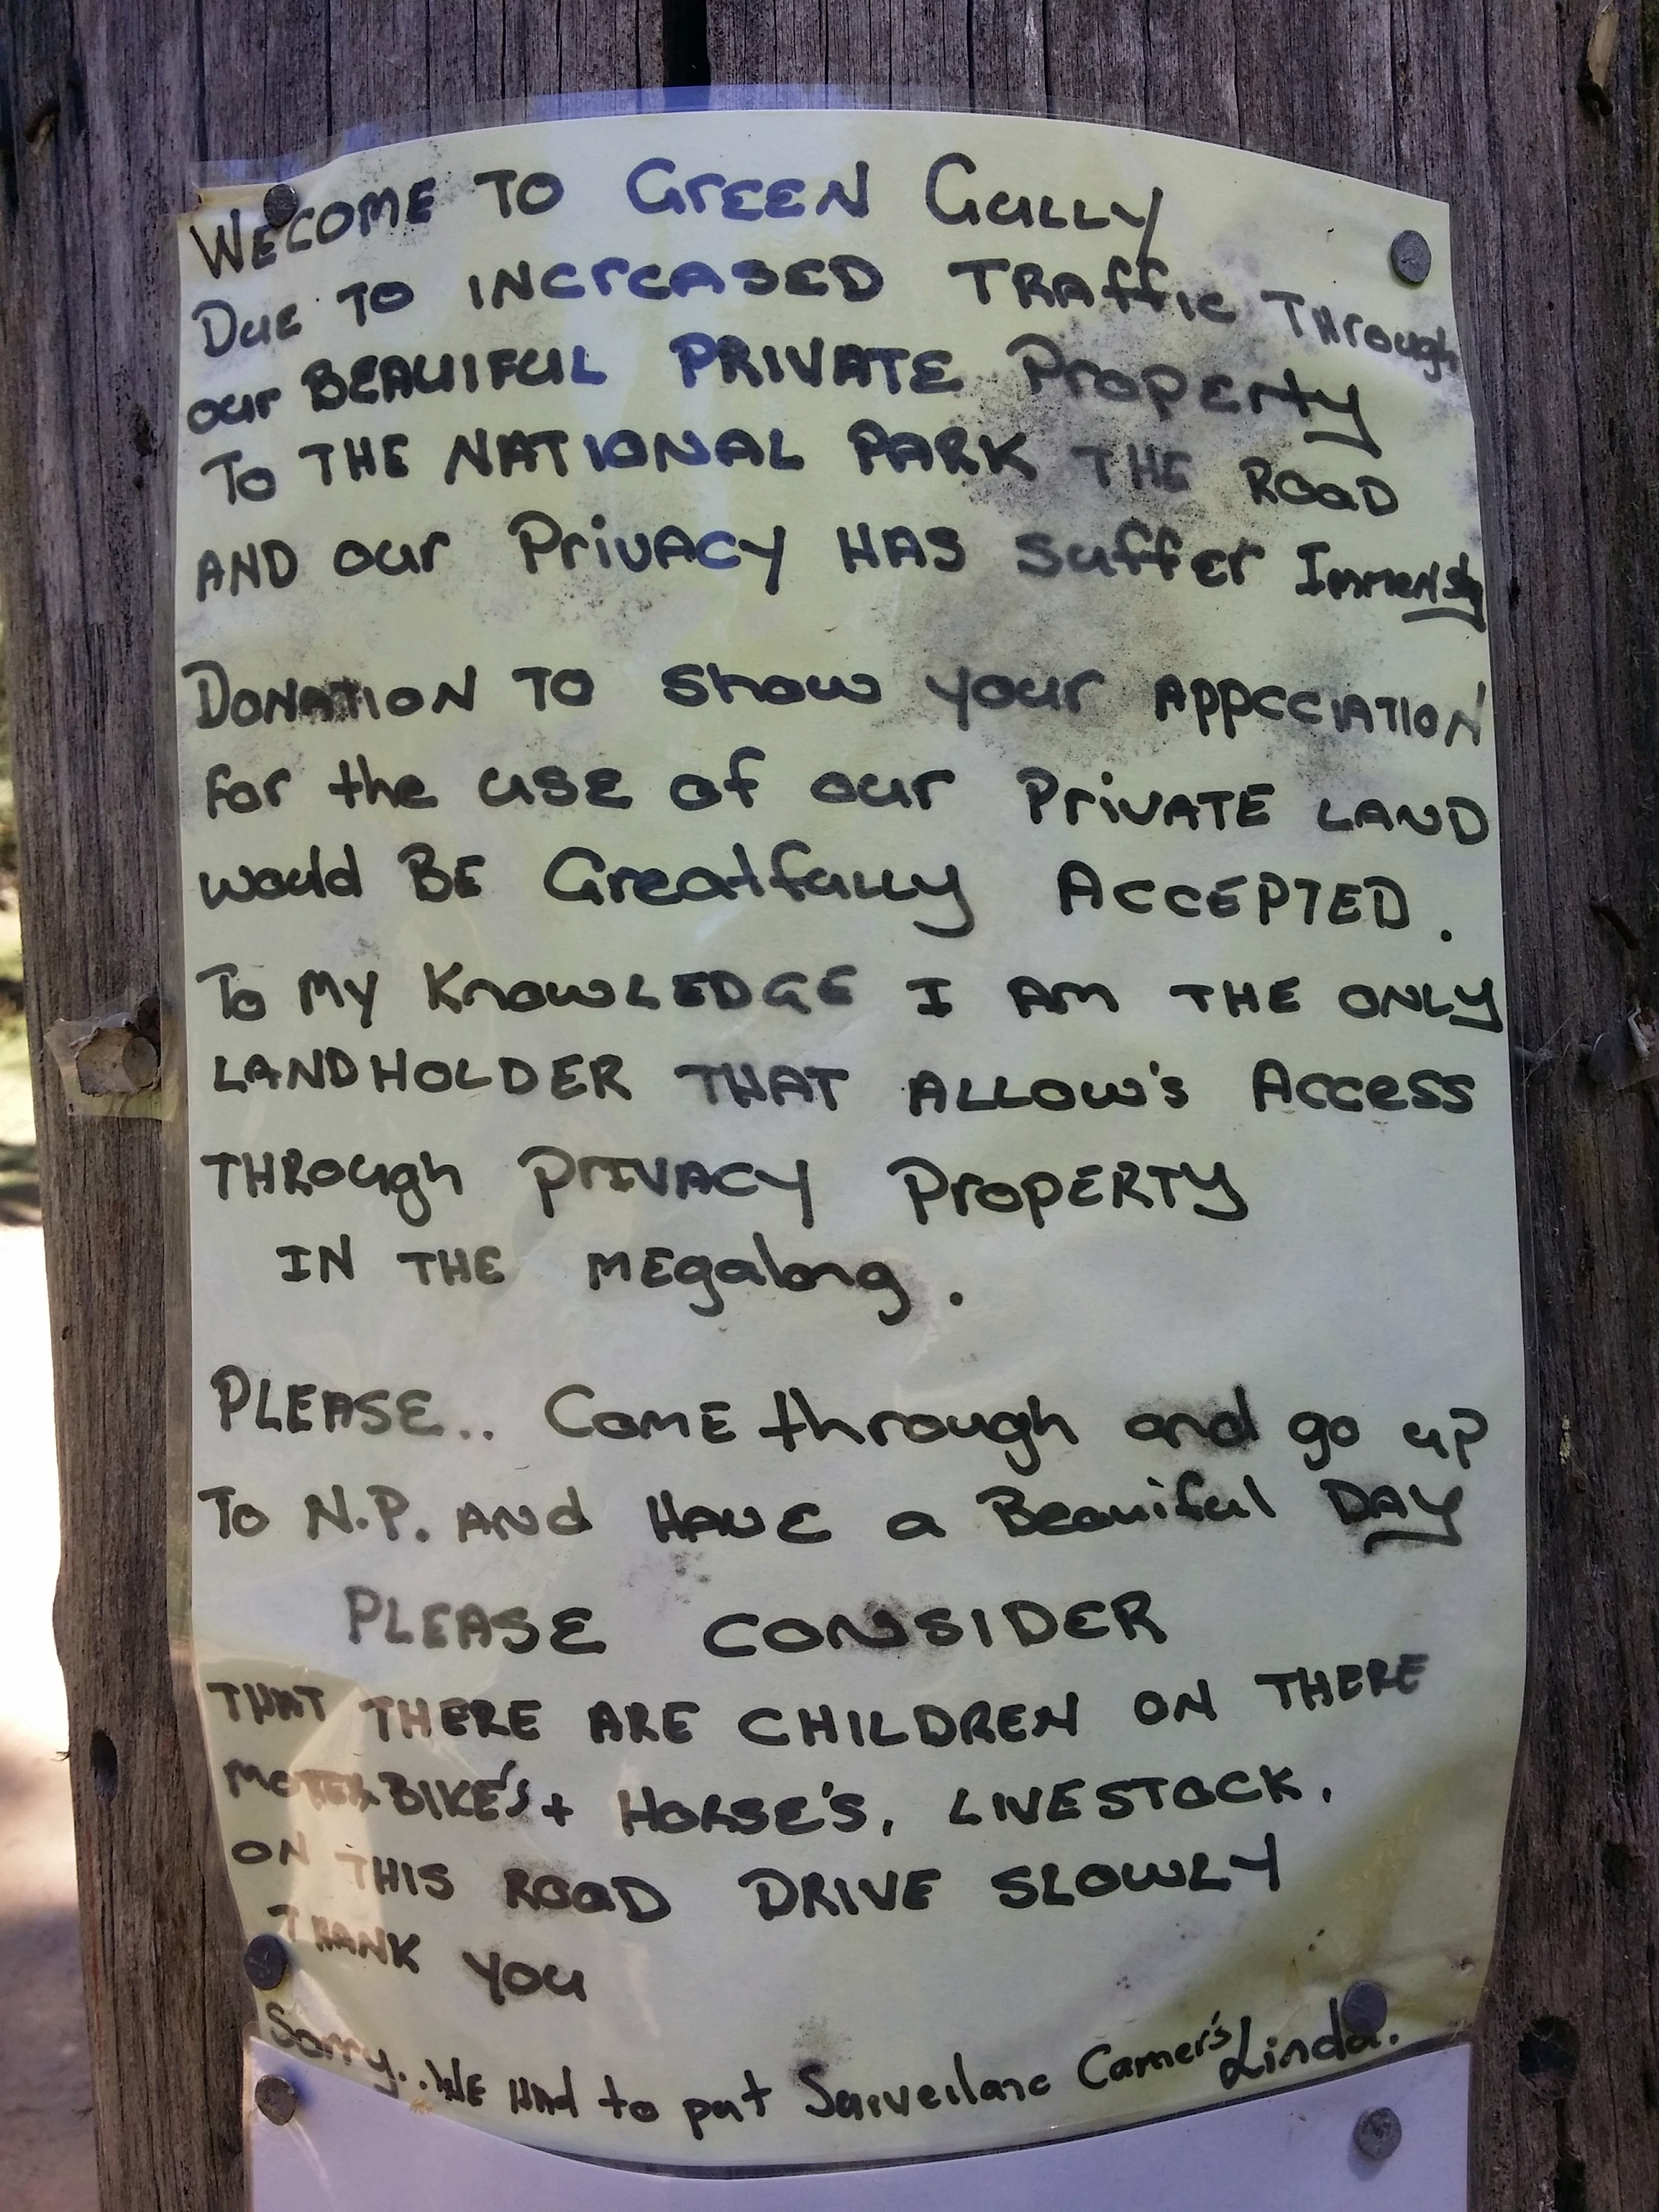 WECOME TO GrEEN GuLLY
DuE TO INCrEASED TRAffic THrough
our BEAUIFUL PRIVATE PropErty
To THE NATIONAL PARK THE ROaD
AND our PrivACY HAS suffer Immensly
DONATION TO Show your APPCCIATION
For the uSE of our PriVATE LAND
would BE Greatfully ACCEPTED.
To MY KnowLEDGE I Am THE ONLY
LANDHOLDER THAT ALLOW's AccesS
THRough PrIVACY ProPERTY
IN THE MEgalong.
PLEASE.. ComE through and go up
To N.P. ANd HAVE a Beauiful DAY
PLEASE CONSIDER
THAT THERE ARE CHILDREN ON THERE
MOTERBIKE'S + HORSE'S, LIVESTOCK.
ON THIS ROaD DRIVE SLOWLY
THANK YOu
Sorry..WE Had to put Surveilanc Camer's Linda.